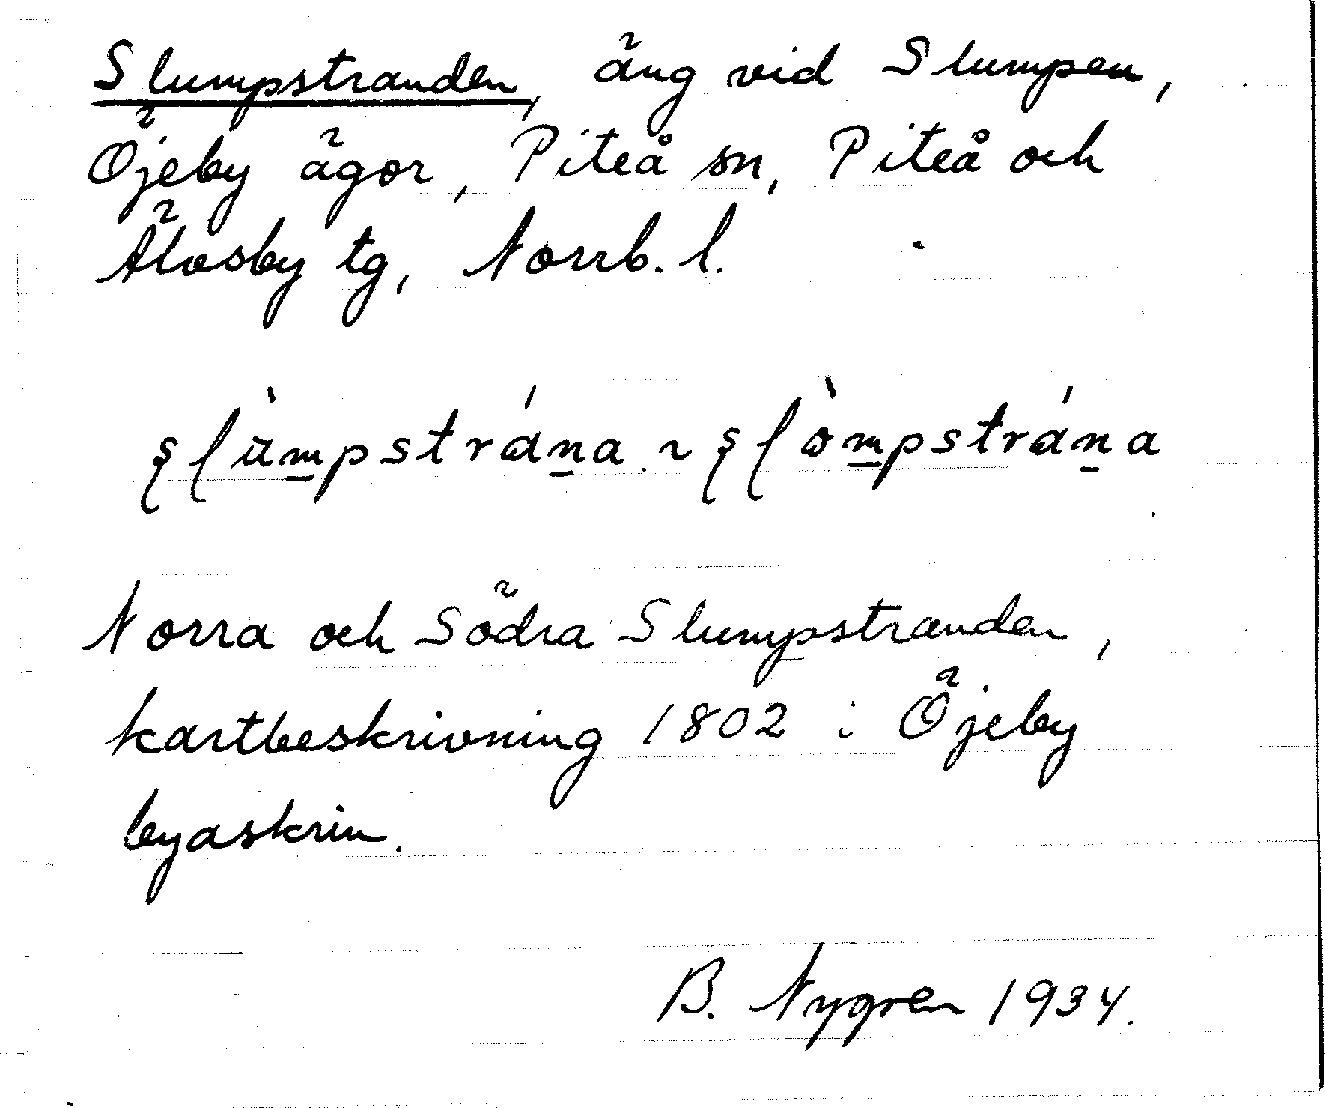 Slumpstranden, äng vid Slumpen,
Öjeby ägor, Piteå sn, Piteå och
Älvsby tg, Norrb. l.
Norra och Södra Slumpstranden,
kartbeskrivning 1802 i Öjeby
byaskrin.
B. Nygren 1934.